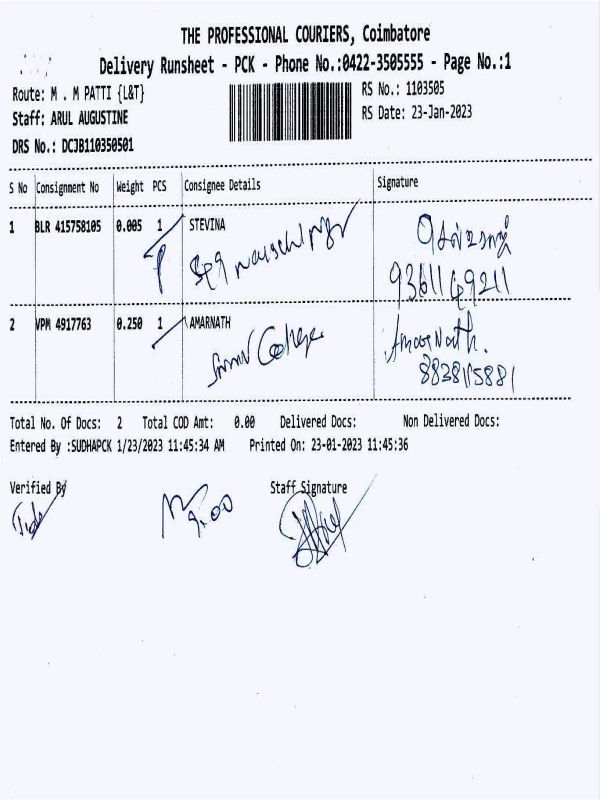 THE PROFESSIONAL COURIERS, Coimbatore
Delivery Runsheet - PCK - Phone No.:0422-3505555 - Page No.:1
Route: M . M PATTI {L&T}
RS No.: 1103505
Staff: ARUL AUGUSTINE
RS Date: 23-Jan-2023
DRS No.: DCJB110350501
S No Consignment No Weight PCS Consignee Details Signature
1 BLR 415758105 0.005 1 STEVINA
9361149211
2 VPM 4917763 0.250 1 AMARNATH
College
AmarNath.
Total No. Of Docs: 2 Total COD Amt: 0.00 Delivered Docs: Non Delivered Docs:
Entered By :SUDHAPCK 1/23/2023 11:45:34 AM Printed On: 23-01-2023 11:45:36
Verified By Staff Signature